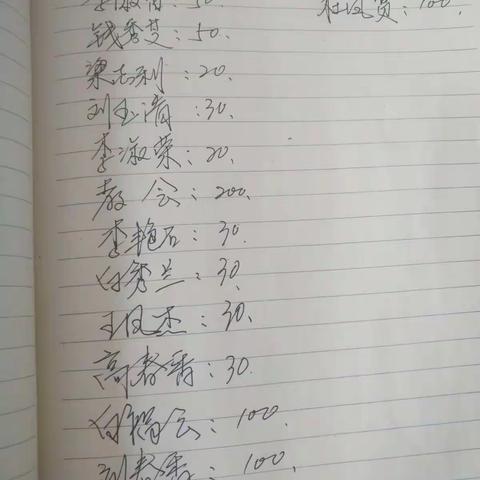 李淑青：50.
杜凤贤：100.
钱秀芝：50.
梁志利：20.
刘玉清：30.
李淑荣：20.
教会：200.
李艳石：30.
白秀兰：30.
王凤杰：30.
高春香：30.
白福会：100.
刘春香：100.